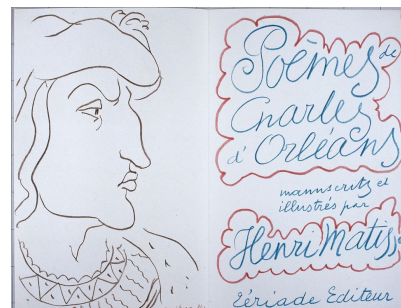 Poèmes de
Charles
d'Orléans
manuscrits et
illustrés par
Henri Matis
Tériade Editeur